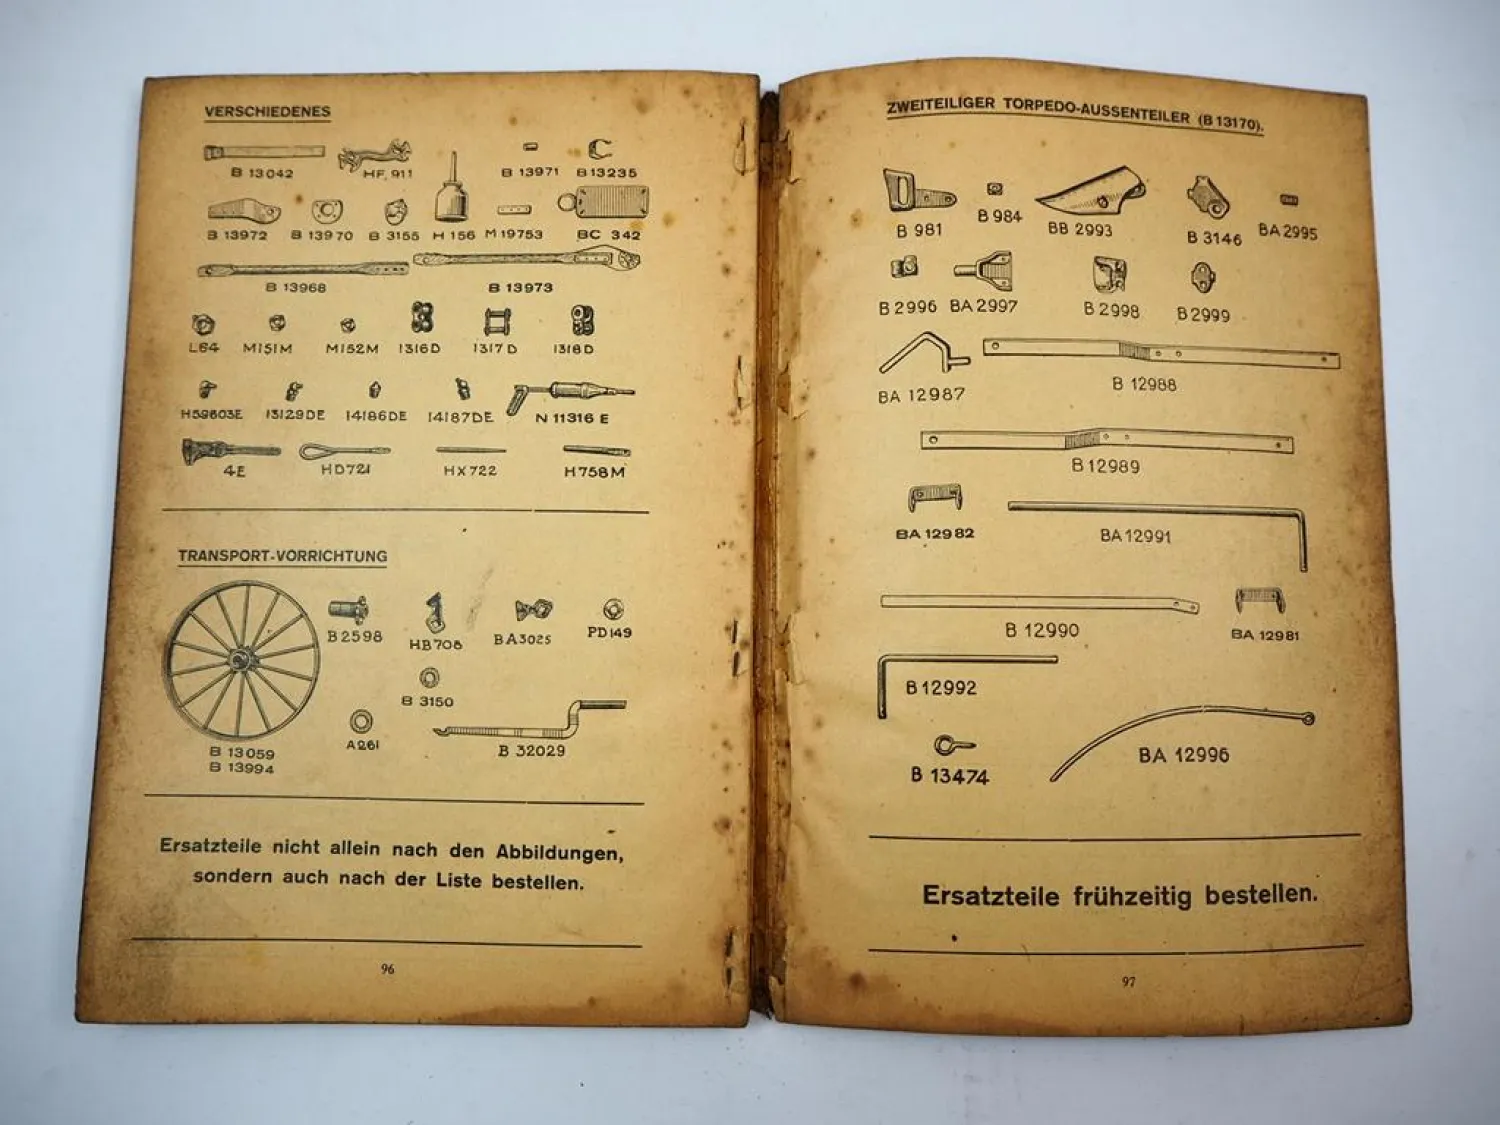 VERSCHIEDENES
B 13042 HF. 911 B 13971 B13235
B 13972 B 13970 B 3155 H 156 M 19753 BC 342
B 13968 B 13973
L64 M151M M152M 1316D 1317D 1318D
H59603E 13129DE 14186DE 14187DE N 11316 E
4E HD721 HX722 H758M
TRANSPORT-VORRICHTUNG
B2598 HB708 BA3025 PD149
B 3150
A261
B 13059 B 32029
B 13994
Ersatzteile nicht allein nach den Abbildungen,
sondern auch nach der Liste bestellen.
96
ZWEITEILIGER TORPEDO-AUSSENTEILER (B 13170).
B 981 B 984 BB 2993 B 3146 BA 2995
B 2996 BA 2997 B 2998 B 2999
BA 12987 B 12988
B 12989
BA 12982 BA 12991
B 12990 BA 12981
B 12992
B 13474 BA 12996
Ersatzteile frühzeitig bestellen.
97